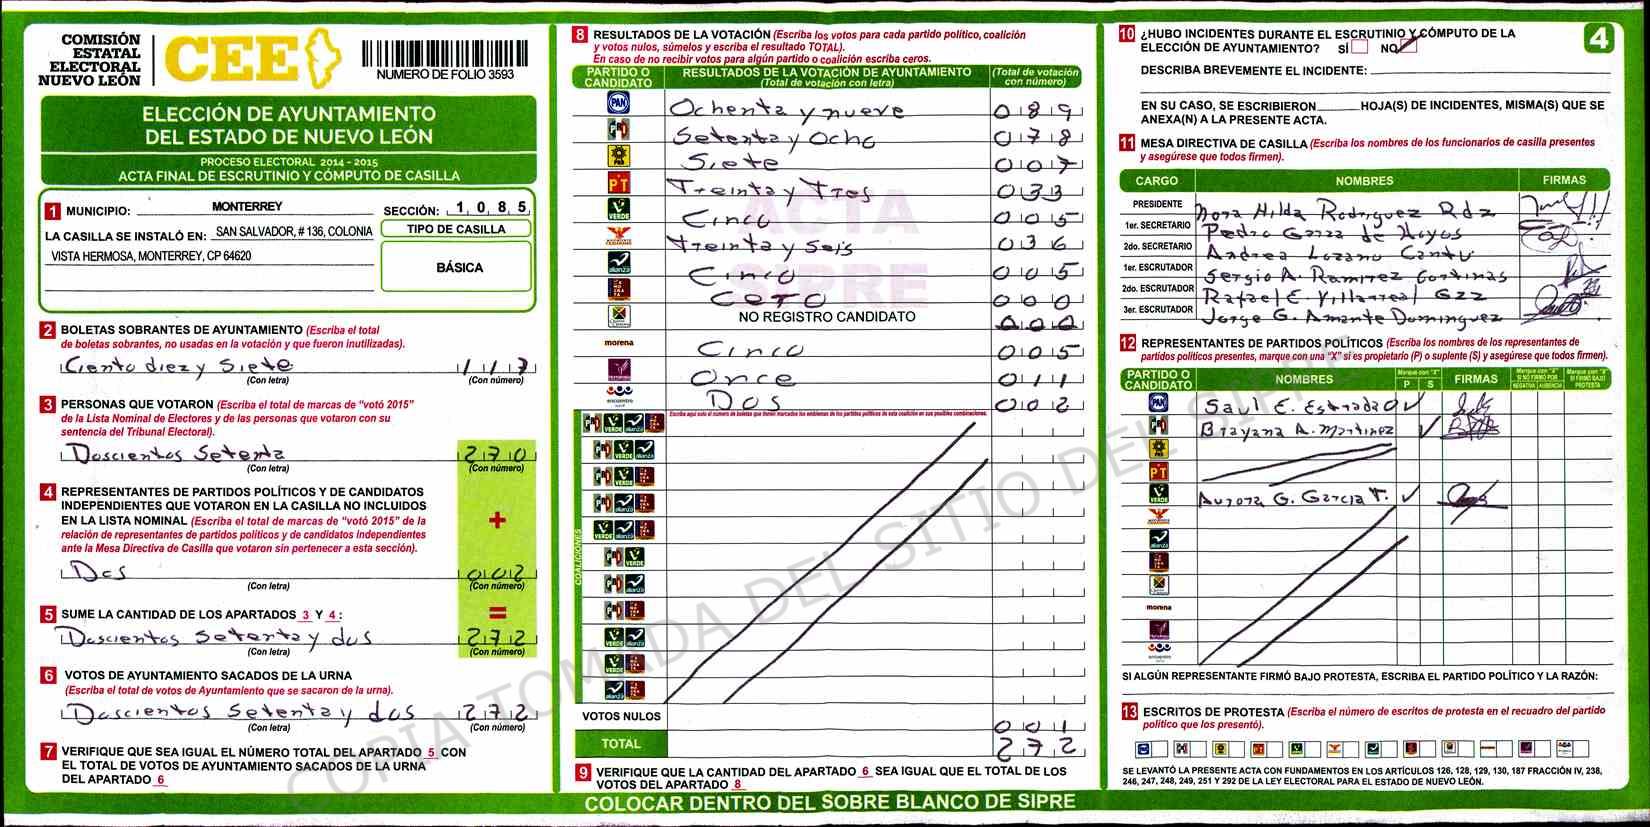 COMISIÓN
ESTATAL
ELECTORAL
NUEVO LEÓN
CEE
NUMERO DE FOLIO 3593
ELECCIÓN DE AYUNTAMIENTO
DEL ESTADO DE NUEVO LEÓN
PROCESO ELECTORAL 2014 - 2015
ACTA FINAL DE ESCRUTINIO Y CÓMPUTO DE CASILLA
1 MUNICIPIO: MONTERREY SECCIÓN: 1 0 8 5
LA CASILLA SE INSTALÓ EN: SAN SALVADOR, # 136, COLONIA
VISTA HERMOSA, MONTERREY, CP 64620
TIPO DE CASILLA
BÁSICA
2 BOLETAS SOBRANTES DE AYUNTAMIENTO (Escriba el total
de boletas sobrantes, no usadas en la votación y que fueron inutilizadas).
Ciento diez y Siete 1 1 7
(Con letra) (Con número)
3 PERSONAS QUE VOTARON (Escriba el total de marcas de “votó 2015”
de la Lista Nominal de Electores y de las personas que votaron con su
sentencia del Tribunal Electoral).
Doscientos Setenta 2 7 0
(Con letra) (Con número)
4 REPRESENTANTES DE PARTIDOS POLÍTICOS Y DE CANDIDATOS
INDEPENDIENTES QUE VOTARON EN LA CASILLA NO INCLUIDOS
EN LA LISTA NOMINAL (Escriba el total de marcas de “votó 2015” de la
relación de representantes de partidos políticos y de candidatos independientes
ante la Mesa Directiva de Casilla que votaron sin pertenecer a esta sección).
+
Dos 0 0 2
(Con letra) (Con número)
5 SUME LA CANTIDAD DE LOS APARTADOS 3 Y 4 :
=
Doscientos Setenta y dos 2 7 2
(Con letra) (Con número)
6 VOTOS DE AYUNTAMIENTO SACADOS DE LA URNA
(Escriba el total de votos de Ayuntamiento que se sacaron de la urna).
Doscientos Setenta y dos 2 7 2
(Con letra) (Con número)
7 VERIFIQUE QUE SEA IGUAL EL NÚMERO TOTAL DEL APARTADO 5 CON
EL TOTAL DE VOTOS DE AYUNTAMIENTO SACADOS DE LA URNA
DEL APARTADO 6
8 RESULTADOS DE LA VOTACIÓN (Escriba los votos para cada partido político, coalición
y votos nulos, súmelos y escriba el resultado TOTAL).
En caso de no recibir votos para algún partido o coalición escriba ceros.
PARTIDO O CANDIDATO RESULTADOS DE LA VOTACIÓN DE AYUNTAMIENTO (Total de votación con letra) (Total de votación con número)
PAN Ochenta y nueve 0 8 9
PRI Setenta y Ocho 0 7 8
PRD Siete 0 0 7
PT Treinta y Tres 0 3 3
VERDE Cinco 0 0 5
Treinta y Seis 0 3 6
alianza Cinco 0 0 5
Cero 0 0 0
NO REGISTRO CANDIDATO 0 0 0
morena Cinco 0 0 5
Once 0 1 1
encuentro Dos 0 0 2
ACTA
SIPRE
Escriba aquí solo el numero de boletas que tienen marcados los emblemas de los partidos políticos de esta coalición en sus posibles combinaciones.
COALICIONES
VOTOS NULOS 0 0 1
TOTAL 2 7 2
9 VERIFIQUE QUE LA CANTIDAD DEL APARTADO 6 SEA IGUAL QUE EL TOTAL DE LOS
VOTOS DEL APARTADO 8
COLOCAR DENTRO DEL SOBRE BLANCO DE SIPRE
10 ¿HUBO INCIDENTES DURANTE EL ESCRUTINIO Y CÓMPUTO DE LA
ELECCIÓN DE AYUNTAMIENTO? SÍ NO
4
DESCRIBA BREVEMENTE EL INCIDENTE:
EN SU CASO, SE ESCRIBIERON HOJA(S) DE INCIDENTES, MISMA(S) QUE SE
ANEXA(N) A LA PRESENTE ACTA.
11 MESA DIRECTIVA DE CASILLA (Escriba los nombres de los funcionarios de casilla presentes
y asegúrese que todos firmen).
CARGO NOMBRES FIRMAS
PRESIDENTE Nora Hilda Rodriguez Rdz
1er. SECRETARIO Pedro Garza de Hoyos
2do. SECRETARIO Andrea Lozano Cantú
1er. ESCRUTADOR Sergio A. Ramirez Cortinas
2do. ESCRUTADOR Rafael E. Villarreal Gzz
3er. ESCRUTADOR Jorge G. Amante Dominguez
12 REPRESENTANTES DE PARTIDOS POLÍTICOS (Escriba los nombres de los representantes de
partidos políticos presentes, marque con una “X” si es propietario (P) o suplente (S) y asegúrese que todos firmen).
PARTIDO O CANDIDATO NOMBRES Marque con “X” P S FIRMAS Marque con “X” SI NO FIRMO POR NEGATIVA AUSENCIA Marque con “X” SI FIRMO BAJO PROTESTA
PAN Saul E. Estrada O
PRI Brayana A. Martinez
PRD
PT
VERDE Aurora G. Garcia T.
alianza
morena
encuentro
SI ALGÚN REPRESENTANTE FIRMÓ BAJO PROTESTA, ESCRIBA EL PARTIDO POLÍTICO Y LA RAZÓN:
13 ESCRITOS DE PROTESTA (Escriba el número de escritos de protesta en el recuadro del partido
político que los presentó).
SE LEVANTÓ LA PRESENTE ACTA CON FUNDAMENTOS EN LOS ARTÍCULOS 126, 128, 129, 130, 187 FRACCIÓN IV, 238,
246, 247, 248, 249, 251 Y 292 DE LA LEY ELECTORAL PARA EL ESTADO DE NUEVO LEÓN.
COPIA TOMADA DEL SITIO DEL SIPRE